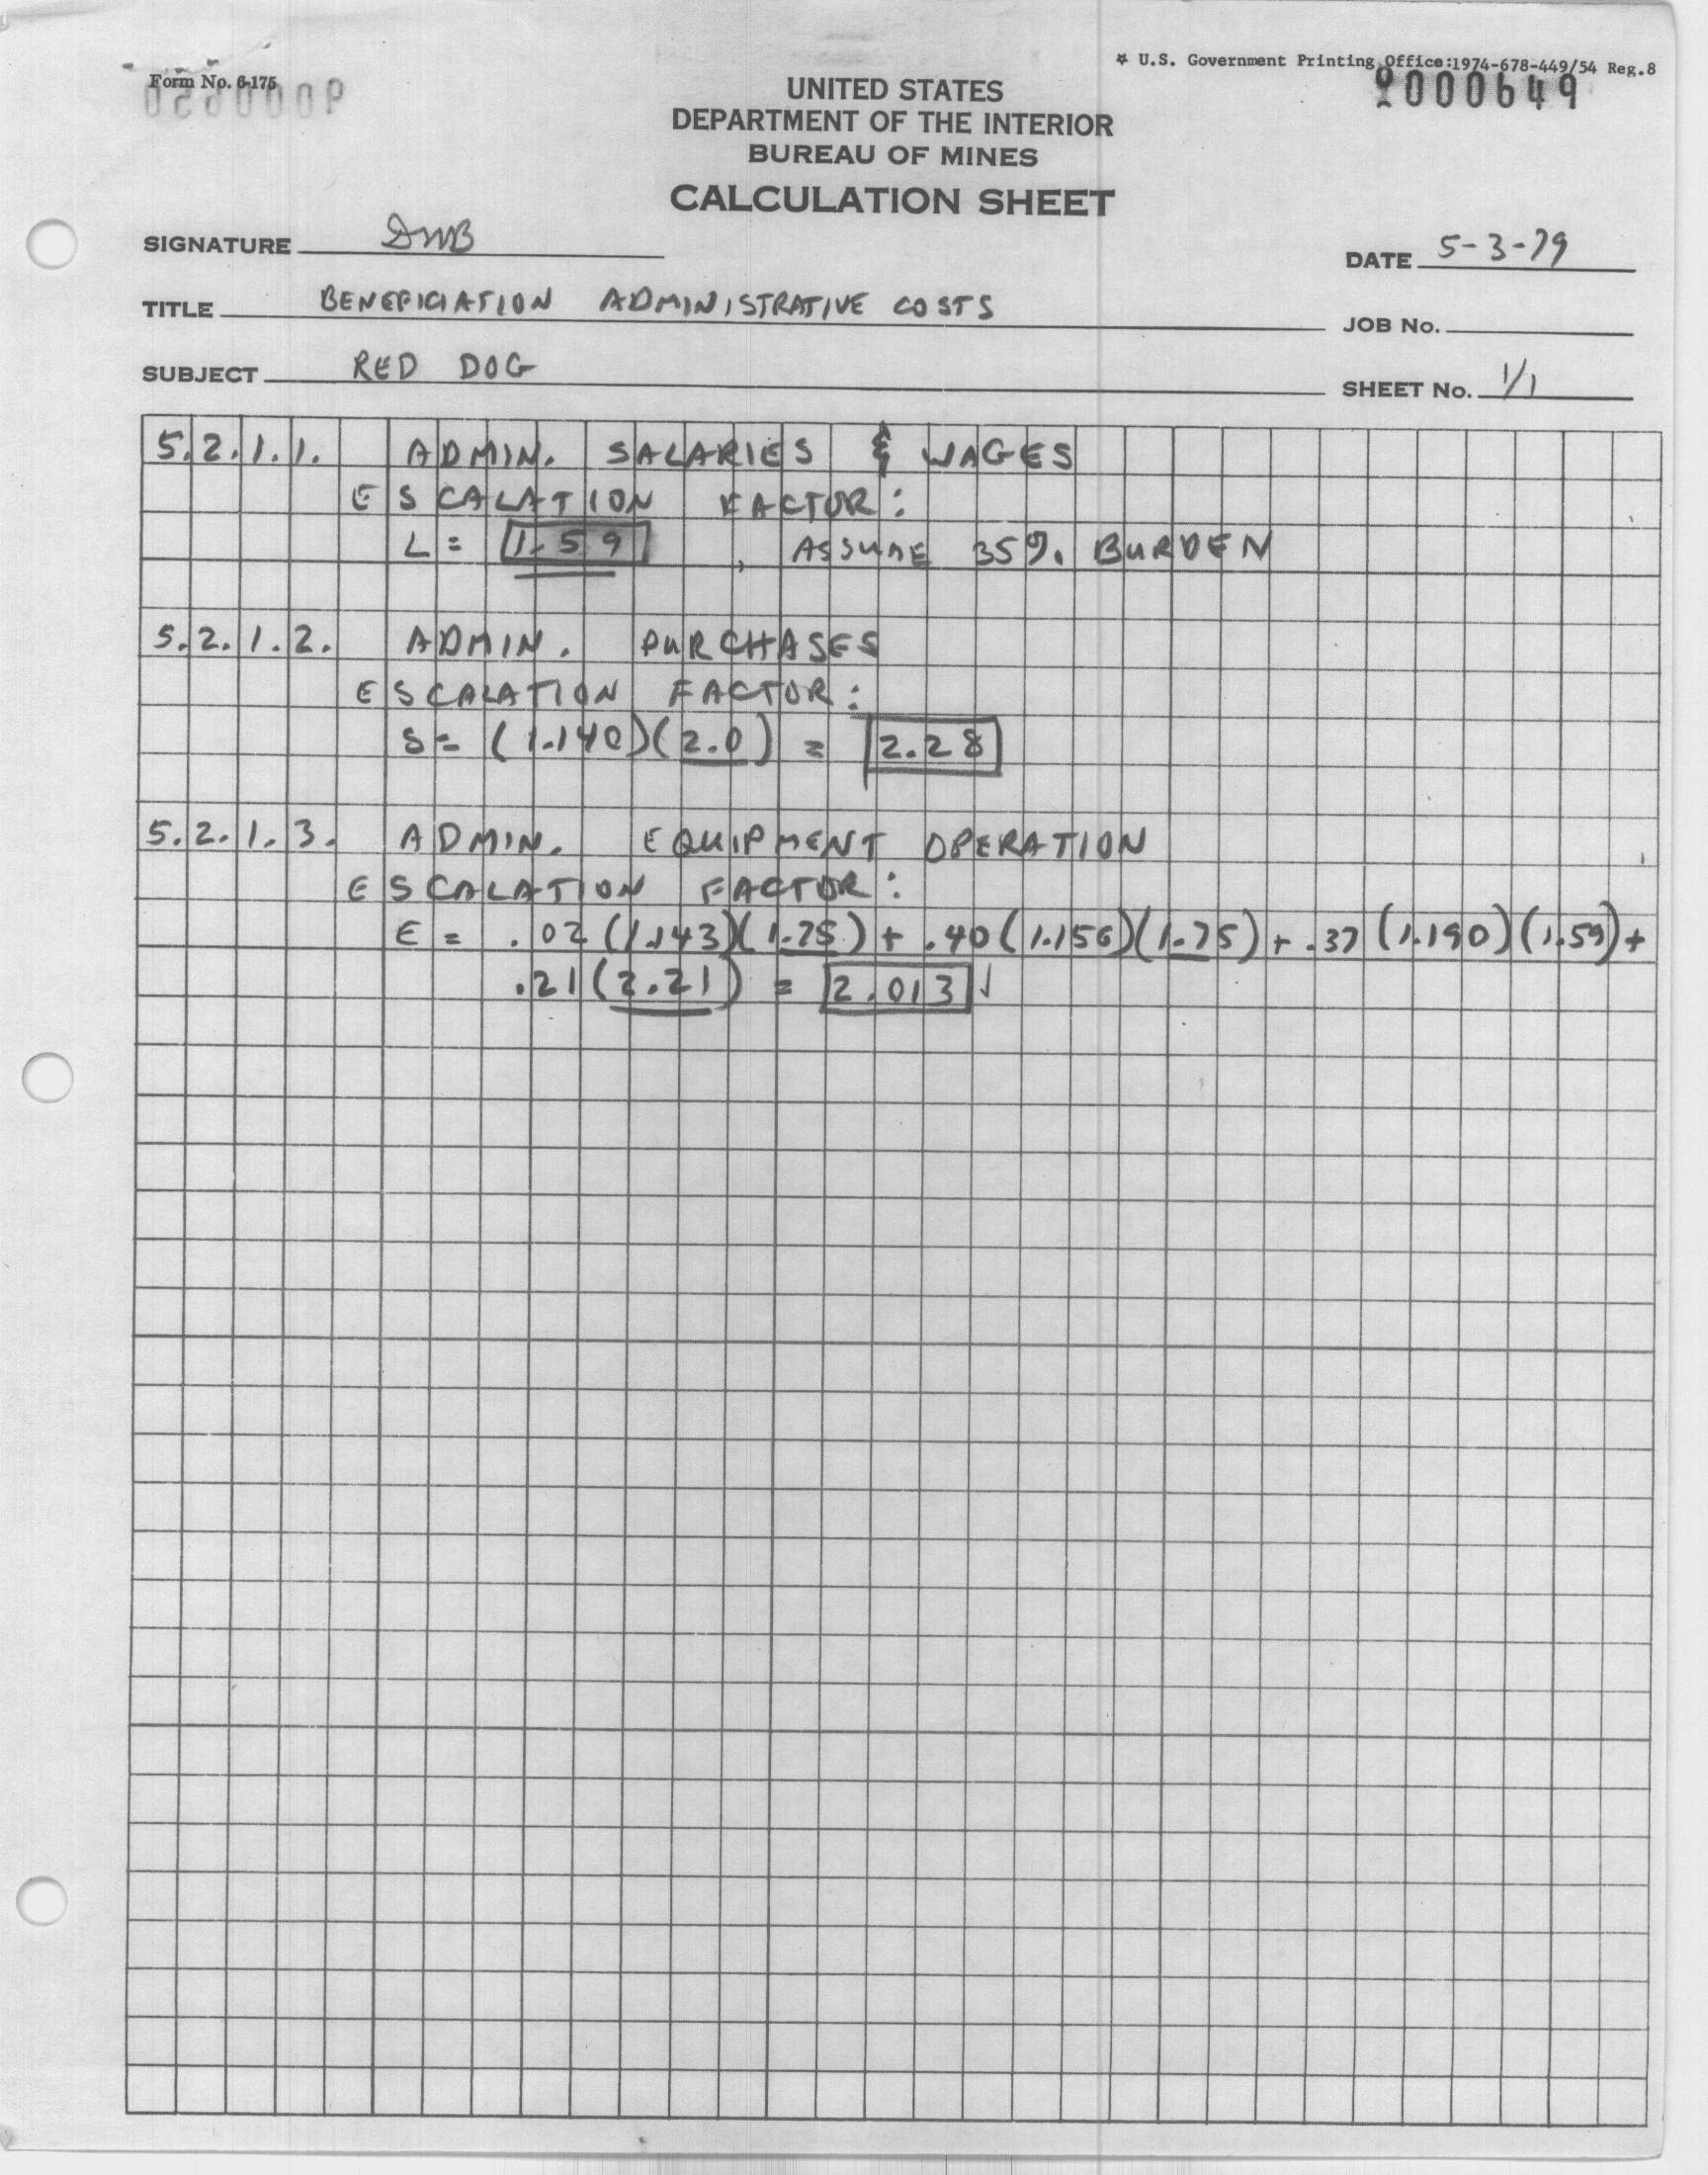 Form No. 6-175
* U.S. Government Printing Office:1974-678-449/54 Reg.8
9000649
UNITED STATES
DEPARTMENT OF THE INTERIOR
BUREAU OF MINES
CALCULATION SHEET
SIGNATURE DMB
DATE 5-3-79
TITLE BENEFICIATION ADMINISTRATIVE COSTS
JOB No.
SUBJECT RED DOG
SHEET No. 1/1
5.2.1.1. ADMIN. SALARIES & WAGES
ESCALATION FACTOR:
L = 1.59 , ASSUME 35% BURDEN
5.2.1.2. ADMIN. PURCHASES
ESCALATION FACTOR:
S = (1.140)(2.0) = 2.28
5.2.1.3. ADMIN. EQUIPMENT OPERATION
ESCALATION FACTOR:
E = .02(1.143)(1.75) + .40(1.156)(1.75) + .37(1.190)(1.59) +
.21(2.21) = 2.013 ✓